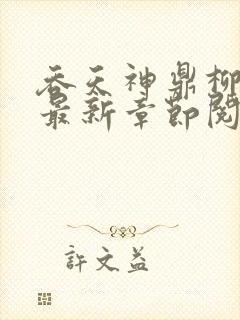 吞天神鼎柳
最新章节阅
许文益